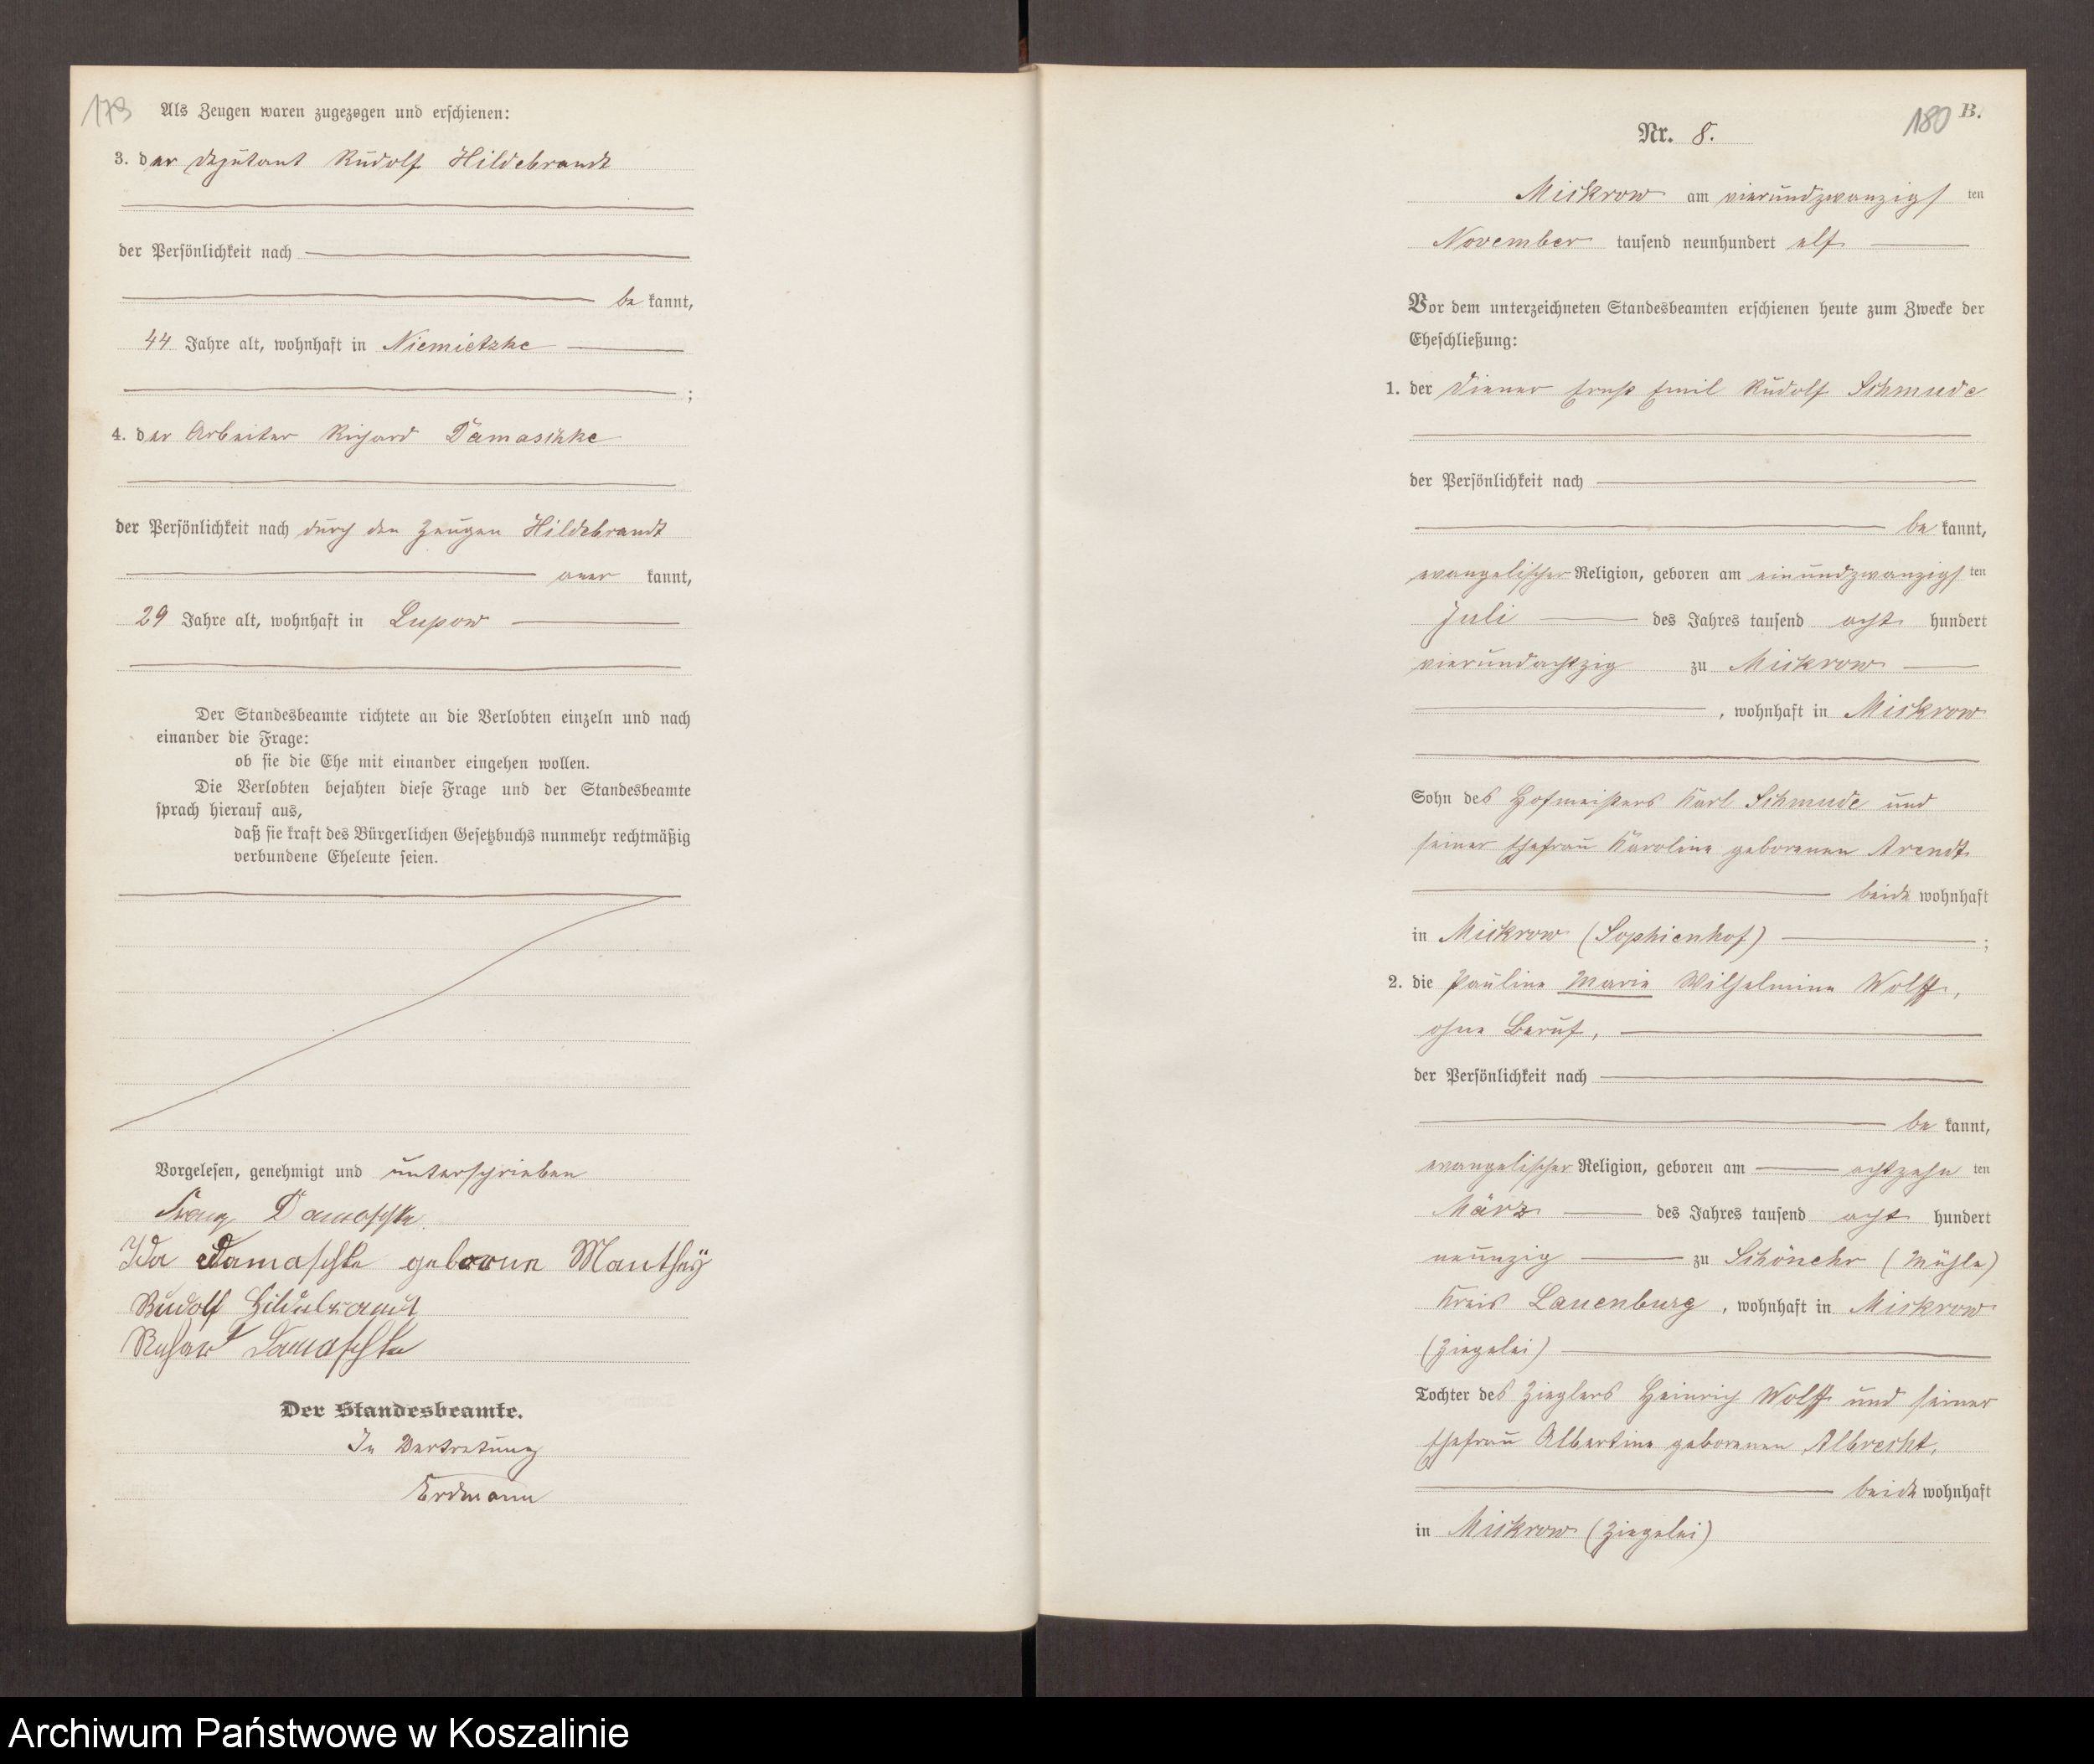 179
Als Zeugen waren zugezogen und erschienen:
3. der Deputant Rudolf Hildebrandt
der Persönlichkeit nach
be kannt,
44 Jahre alt, wohnhaft in Niemietzke
;
4. der Arbeiter Richard Damaschke
der Persönlichkeit nach durch den Zeugen Hildebrandt
aner kannt,
29 Jahre alt, wohnhaft in Lupow
Der Standesbeamte richtete an die Verlobten einzeln und nach
einander die Frage:
ob sie die Ehe mit einander eingehen wollen.
Die Verlobten bejahten diese Frage und der Standesbeamte
sprach hierauf aus,
daß sie kraft des Bürgerlichen Gesetzbuchs nunmehr rechtmäßig
verbundene Eheleute seien.
Vorgelesen, genehmigt und unterschrieben
Franz Damaschke
Ida Damaschke geborene Manthey
Rudolf Hildebrandt
Richard Damaschke
Der Standesbeamte.
In Vertretung
Erdmann
180 B.
Nr. 8.
Mickrow am vierundzwanzigs ten
November tausend neunhundert elf
Vor dem unterzeichneten Standesbeamten erschienen heute zum Zwecke der
Eheschließung:
1. der Diener Ernst Emil Rudolf Schmude
der Persönlichkeit nach
be kannt,
evangelischer Religion, geboren am einundzwanzigs ten
Juli des Jahres tausend acht hundert
vierundachtzig zu Mickrow
, wohnhaft in Mickrow
Sohn des Hofmeisters Karl Schmude und
seiner Ehefrau Karoline geborenen Arendt
beide wohnhaft
in Mickrow (Sophienhof) ;
2. die Pauline Marie Wilhelmine Wolff,
ohne Beruf,
der Persönlichkeit nach
be kannt,
evangelischer Religion, geboren am achtzehn ten
März des Jahres tausend acht hundert
neunzig zu Schönehr (Mühle)
Kreis Lauenburg, wohnhaft in Mickrow
(Ziegelei)
Tochter des Zieglers Heinrich Wolff und seiner
Ehefrau Albertine geborenen Albrecht,
beide wohnhaft
in Mickrow (Ziegelei)
Archiwum Państwowe w Koszalinie